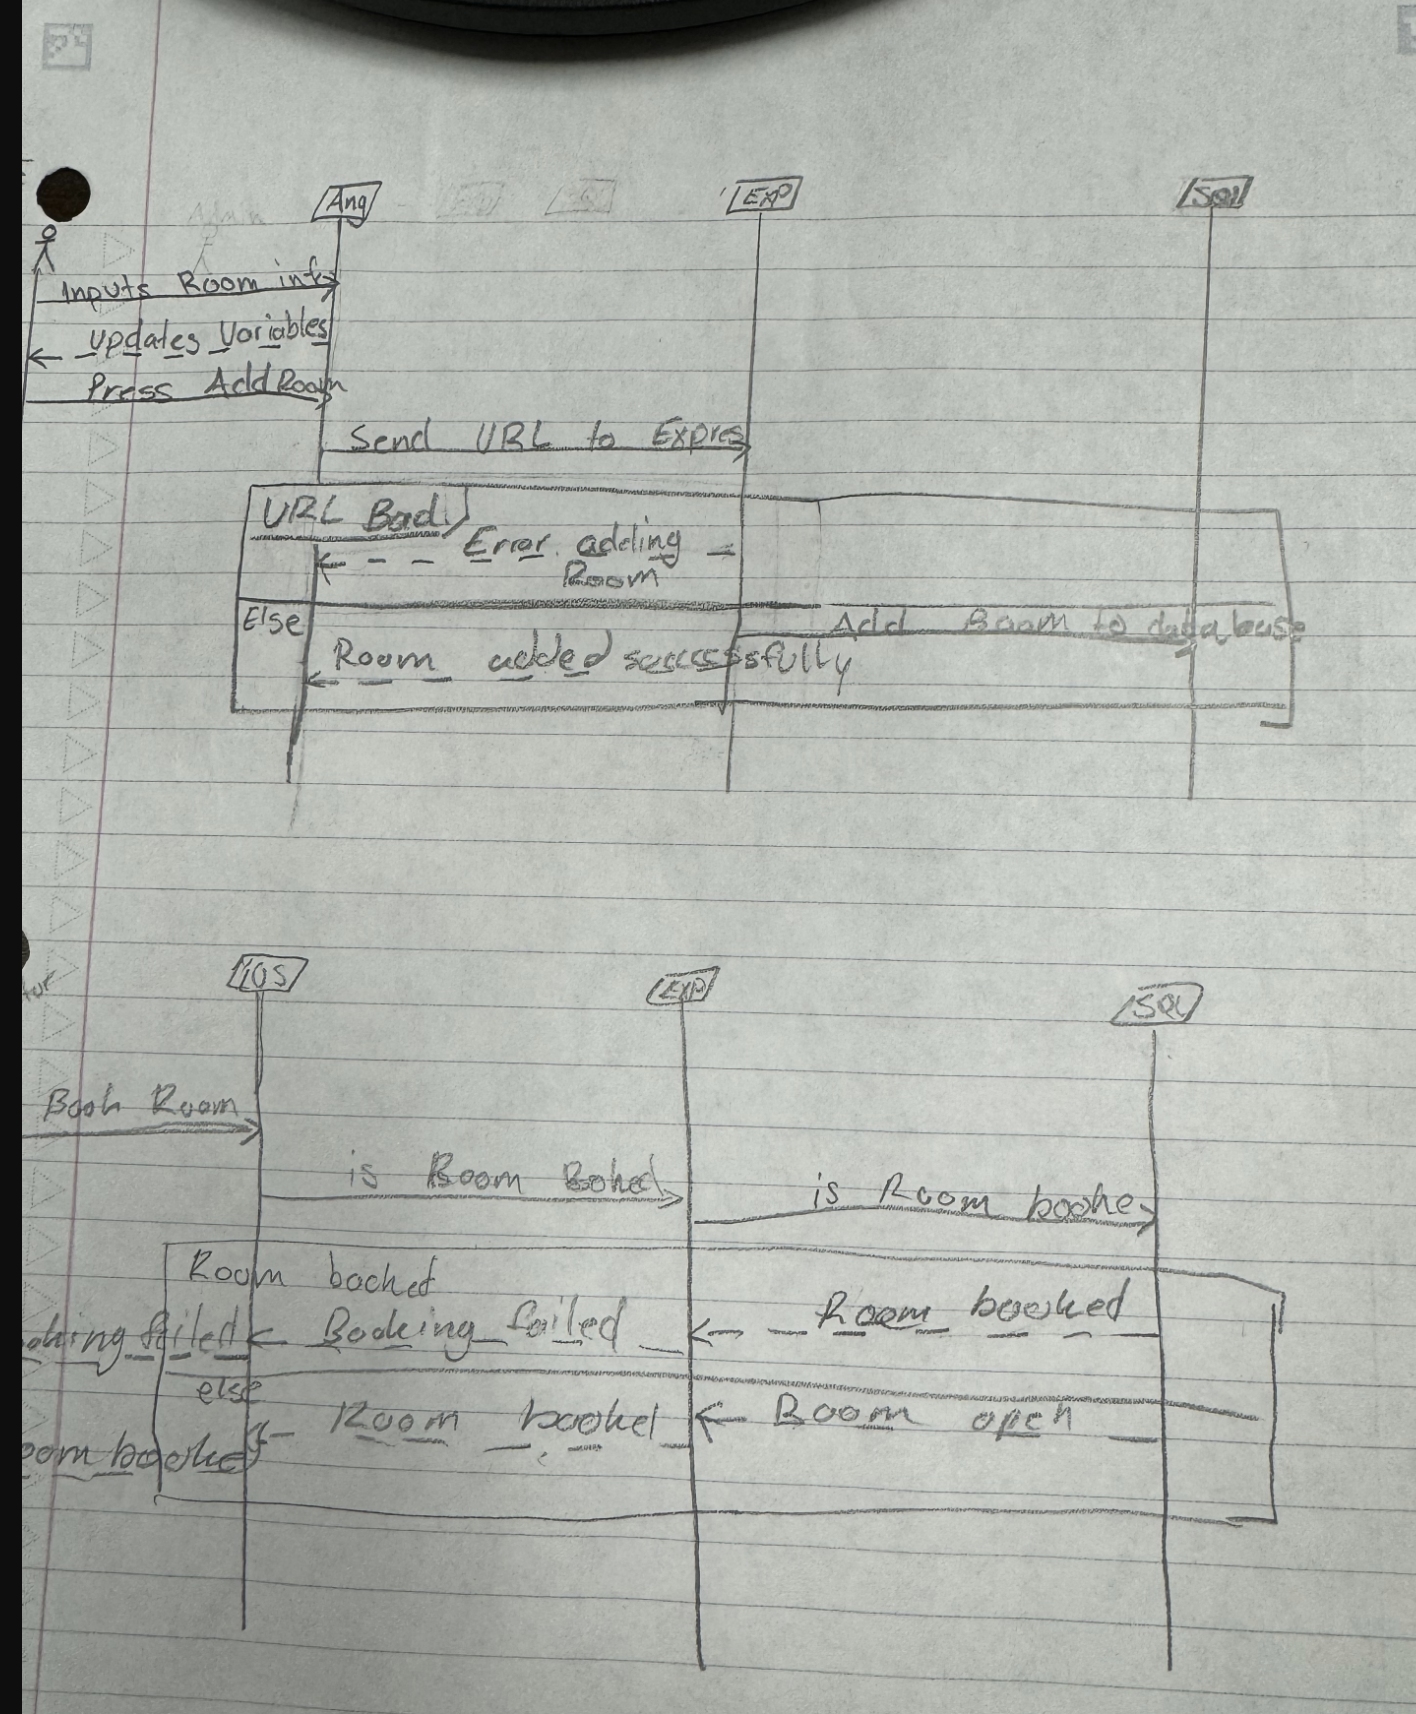 Ang
EXP
SQL
Admin
Inputs Room info
updates Variables
Press Add Room
Send URL to Expres
URL Bad
Error adding
Room
Else
Add Room to database
Room added successfully
iOS
EXP
SQL
Book Room
is Room Boked
is Room booke
Room booked
Room booked
Booking failed
oking failed
else
Room open
Room booked
oom booked